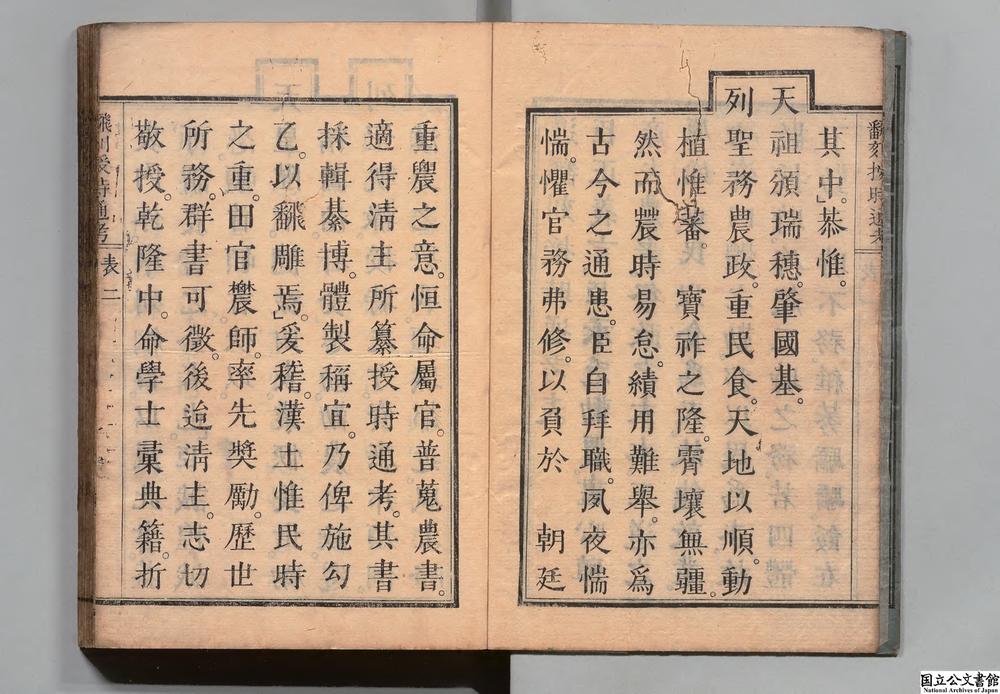 其中。」恭惟。
天祖頒瑞穗。肇國基。
列聖務農政。重民食。天地以順。動
植惟蕃。寶祚之隆。霄壤無疆。
然而農時易怠。績用難舉。亦爲
古今之通患。臣自拜職。夙夜惴
惴。懼官務弗修。以負於　朝廷
重農之意。恒命屬官。普蒐農書。
適得淸主所纂授時通考。其書
採輯綦博。體製稱宜。乃俾施勾
乙。以飜雕焉。」爰稽。漢土惟民時
之重。田官農師。率先奬勵。歷世
所務。群書可徵。後迨淸主。志切
敬授。乾隆中。命學士彙典籍。折
飜刻授時通考　表　二
国立公文書館
National Archives of Japan